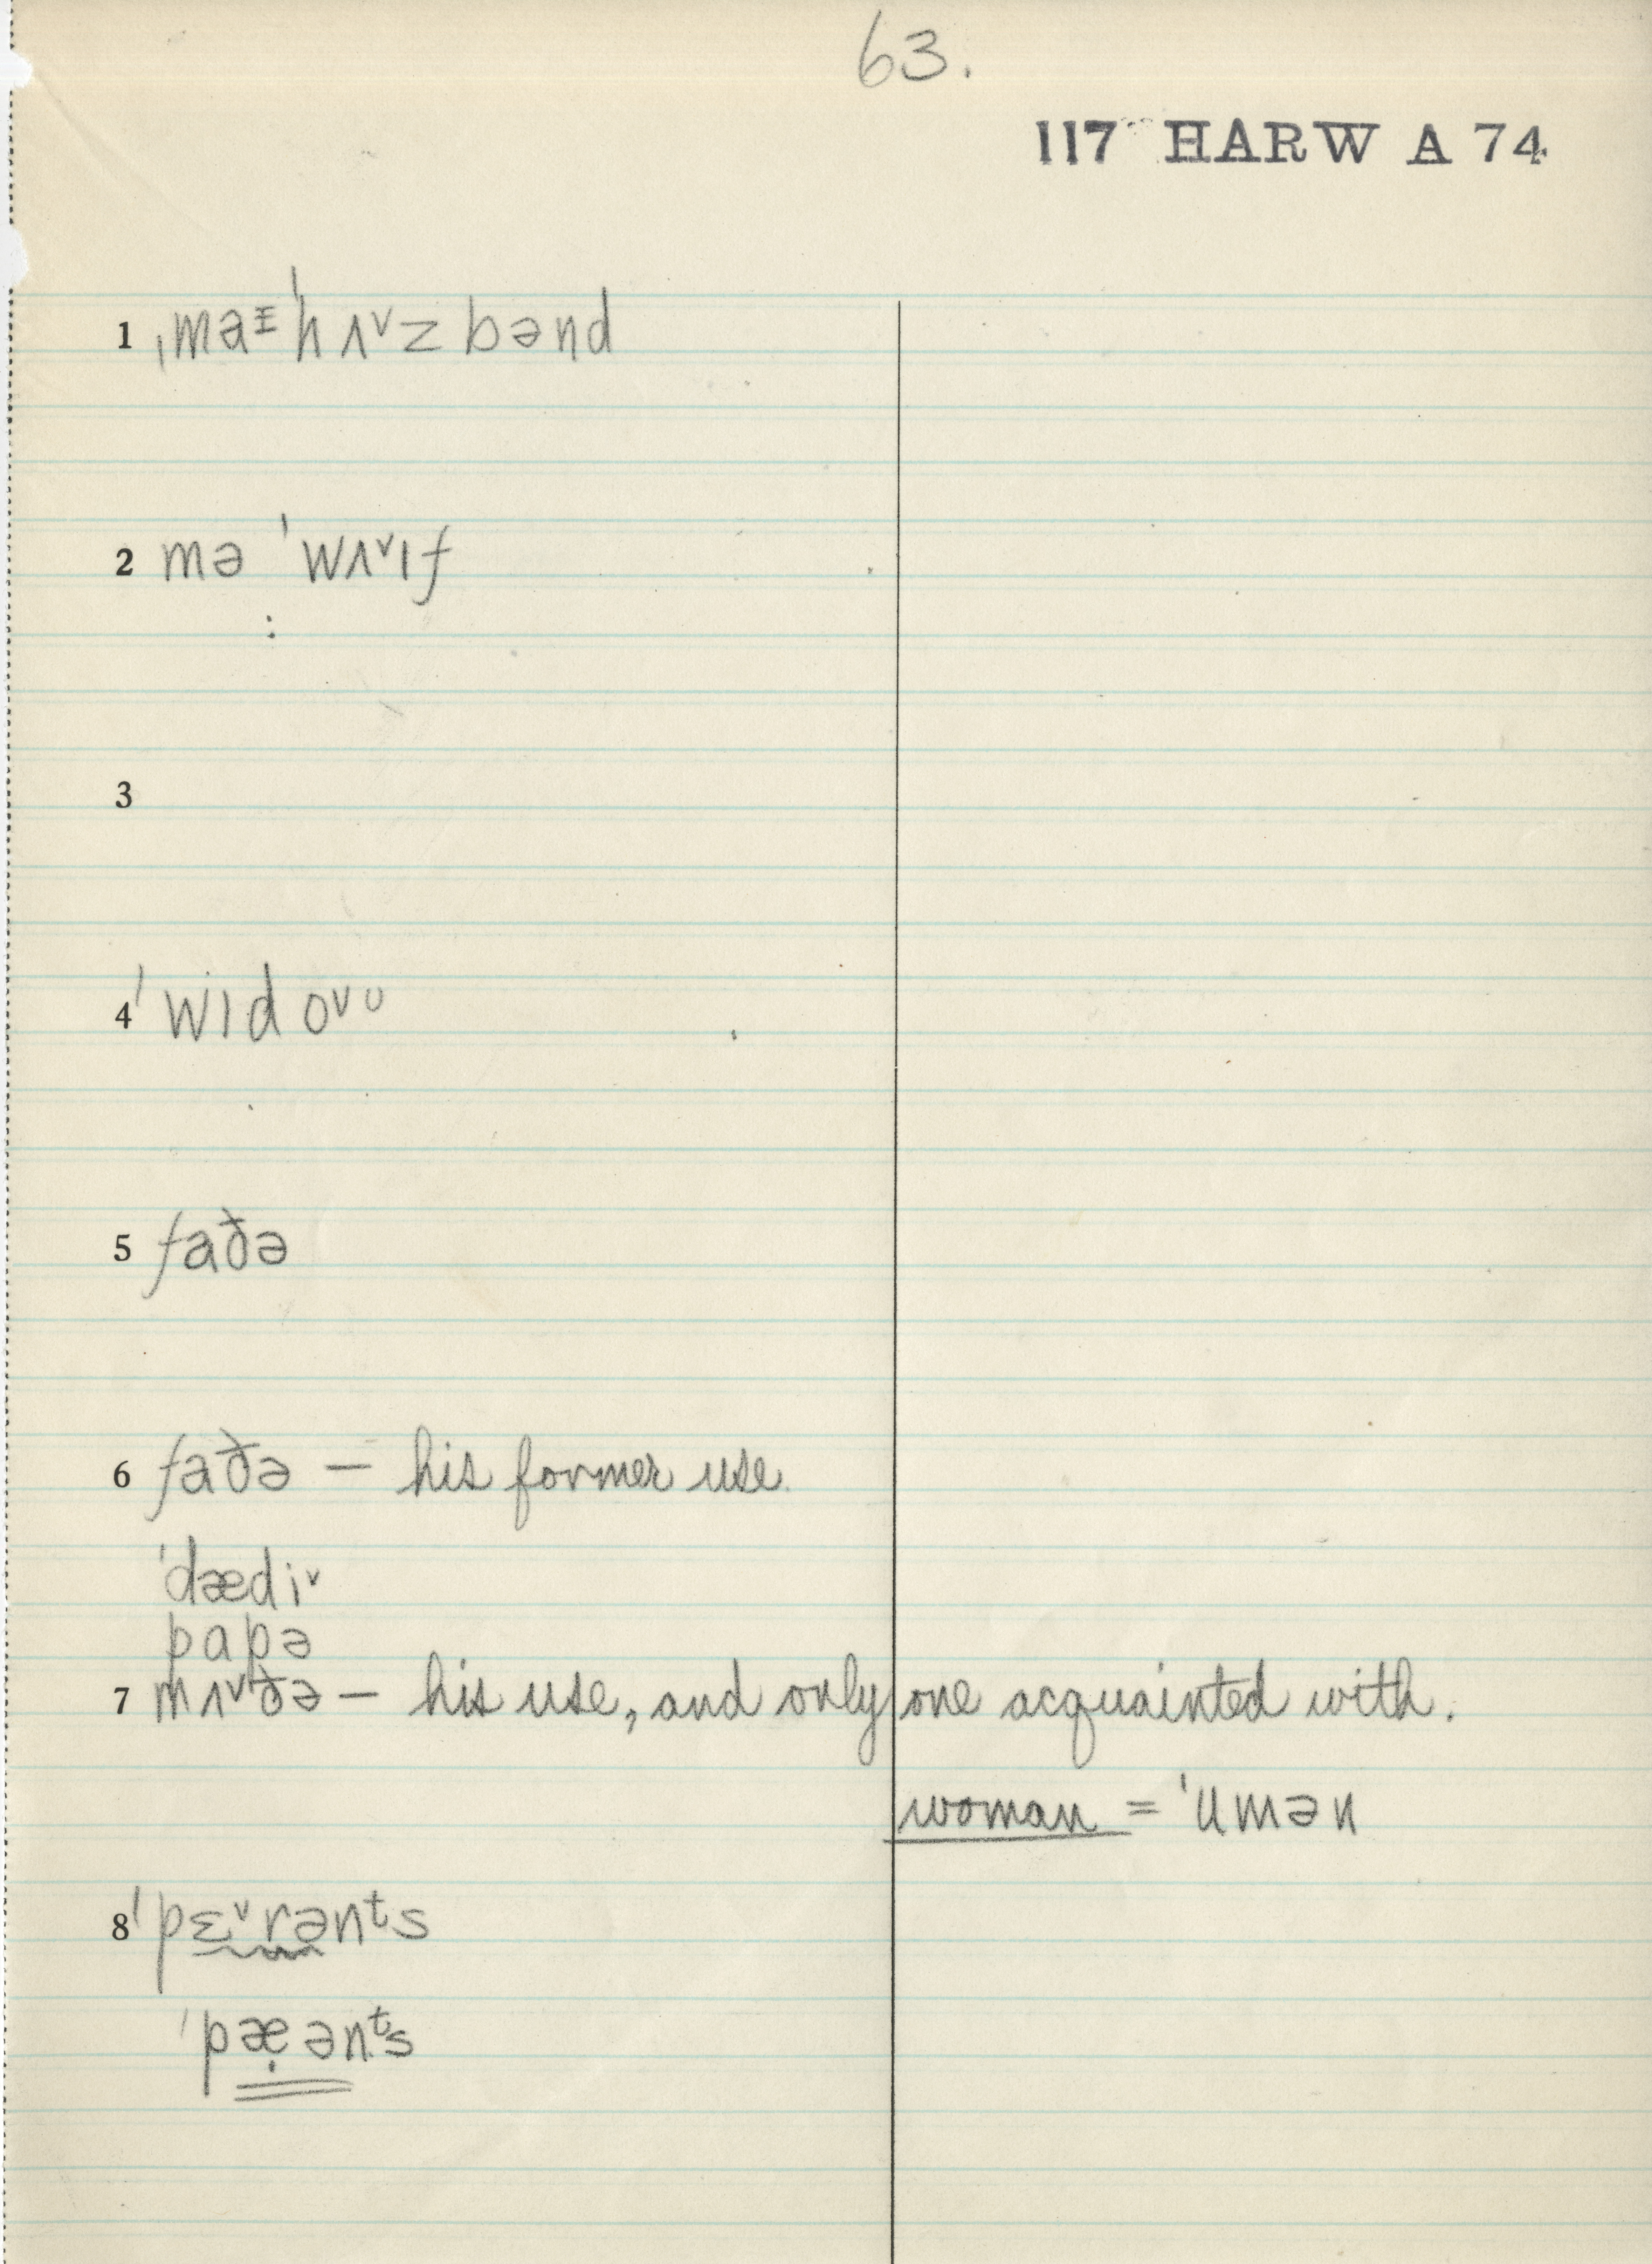 63.
117 HARW A 74
1 ˌmaᵻˈhʌ˅zbənd
2 mə ˈwʌ˅ɪf
3
4 ˈwɪdo˅ᴜ
5 faðə
6 faðə — his former use.
ˈdædi˅
papə
7 mʌ˅ðə — his use, and only one acquainted with.
woman = ˈumən
8 ˈpɛ˅rənᵗs
ˈpæ̣ənᵗs